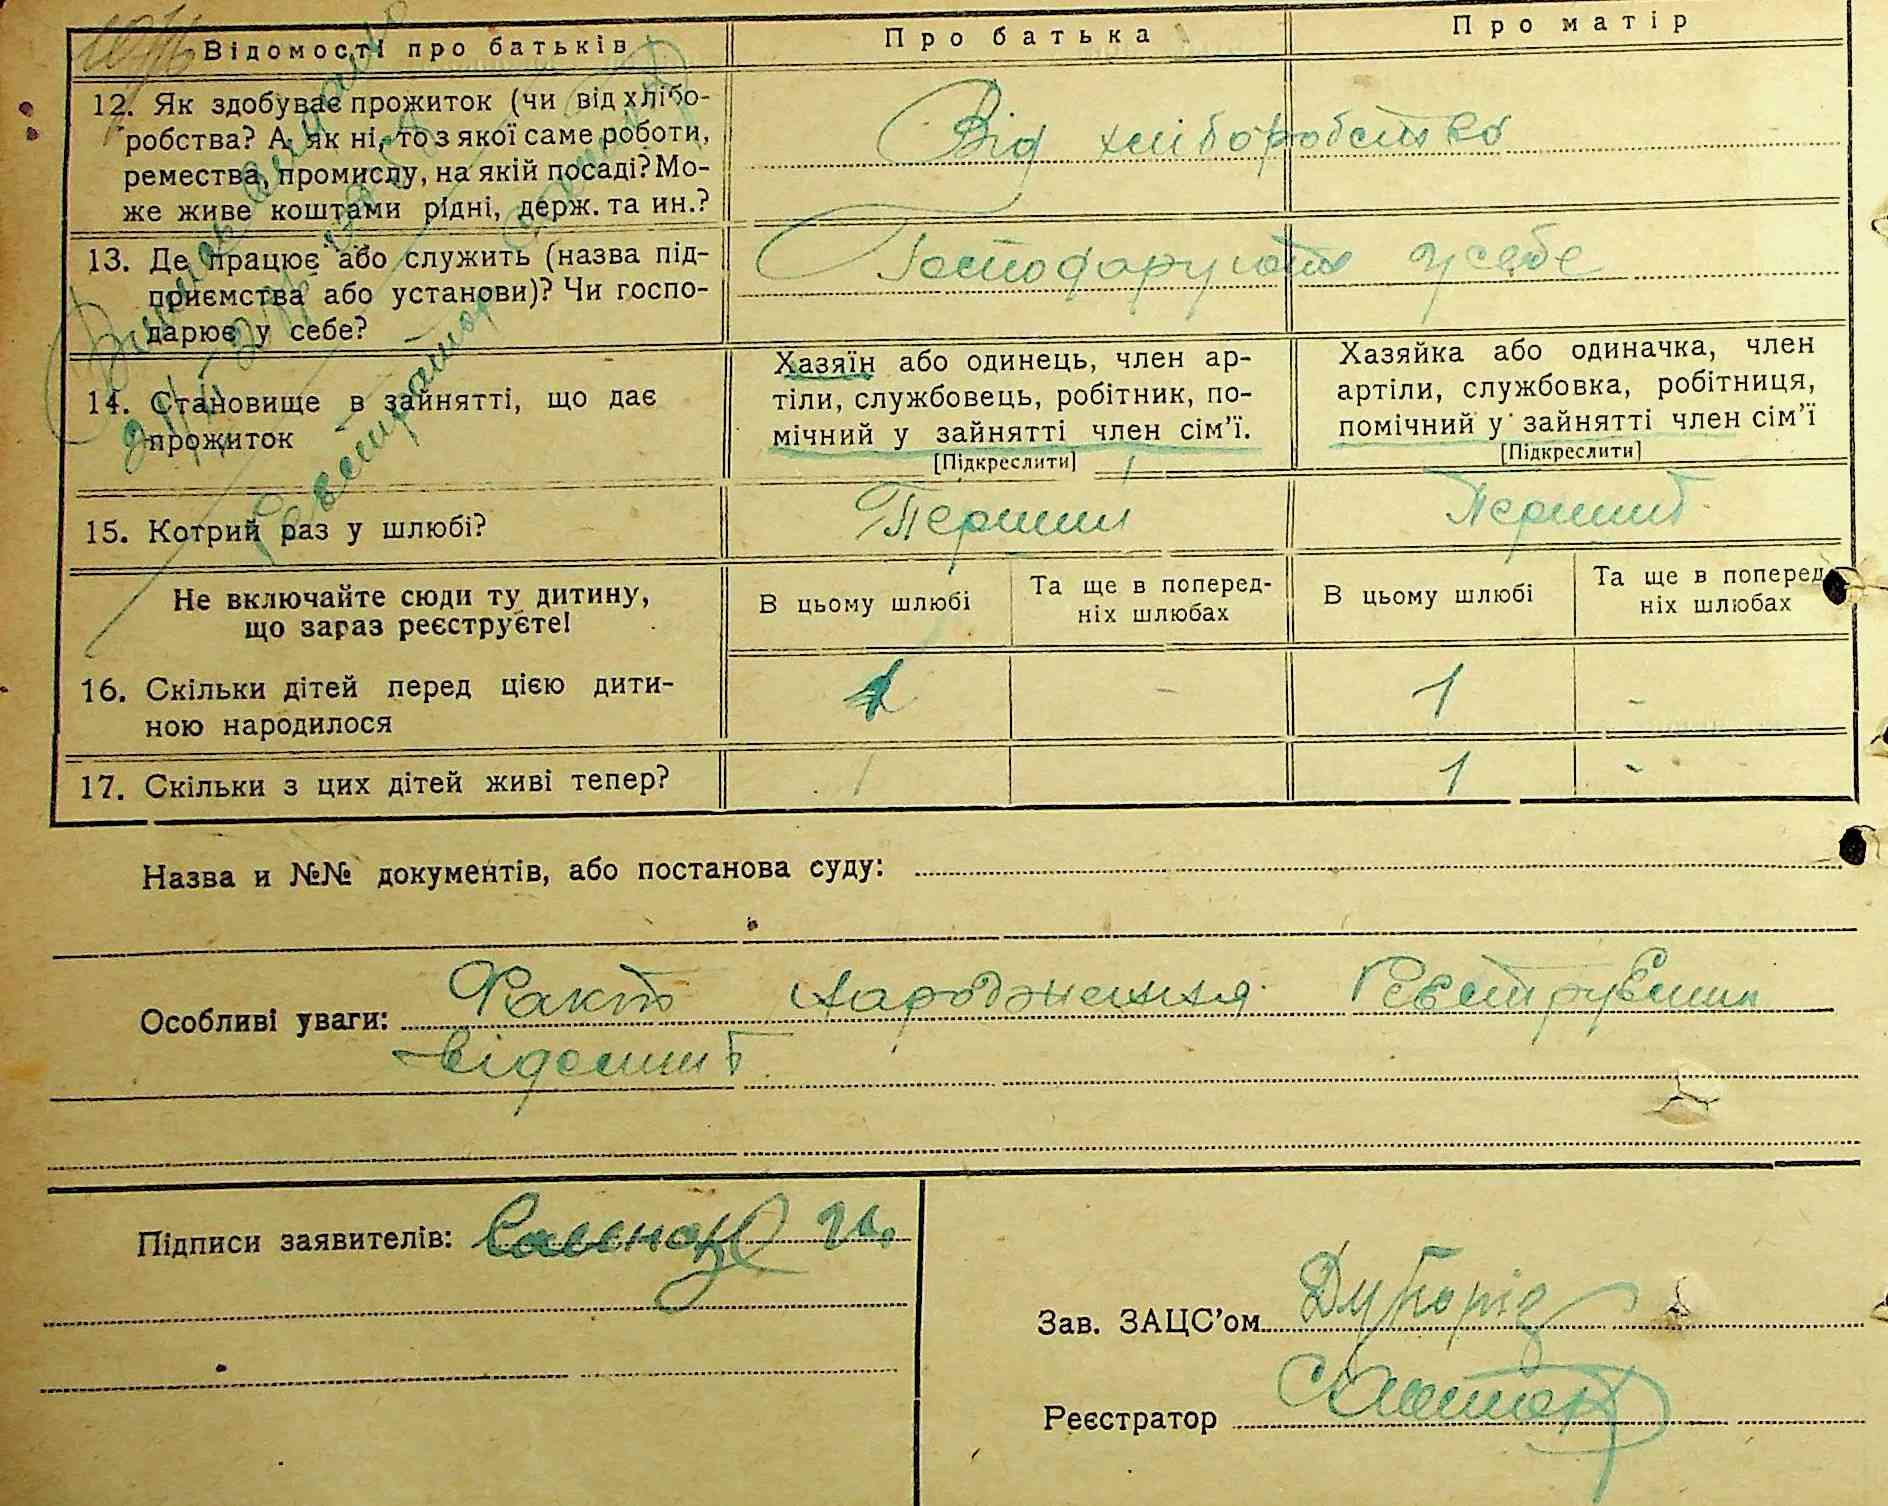 Відомості про батьків
Про батька
Про матір
12. Як здобуває прожиток (чи від хлібо-
робства? А, як ні, то з якої саме роботи,
ремества, промислу, на якій посаді? Мо-
же живе коштами рідні, держ. та ин.?
Від хліборобства
13. Де працює або служить (назва під-
приємства або установи)? Чи госпо-
дарює у себе?
Господарують у себе
14. Становище в зайнятті, що дає
прожиток
Хазяїн або одинець, член ар-
тіли, службовець, робітник, по-
мічний у зайнятті член сім'ї.
[Підкреслити]
Хазяйка або одиначка, член
артіли, службовка, робітниця,
помічний у зайнятті член сім'ї
[Підкреслити]
15. Котрий раз у шлюбі?
Перший
Перший
Не включайте сюди ту дитину,
що зараз реєструєте!
В цьому шлюбі
Та ще в поперед-
ніх шлюбах
В цьому шлюбі
Та ще в поперед-
ніх шлюбах
16. Скільки дітей перед цією дити-
ною народилося
1
-
1
-
17. Скільки з цих дітей живі тепер?
1
1
-
Назва и №№ документів, або постанова суду:
Особливі уваги: Факт народження
Підписи заявителів:
Зав. ЗАЦС'ом
Реєстратор